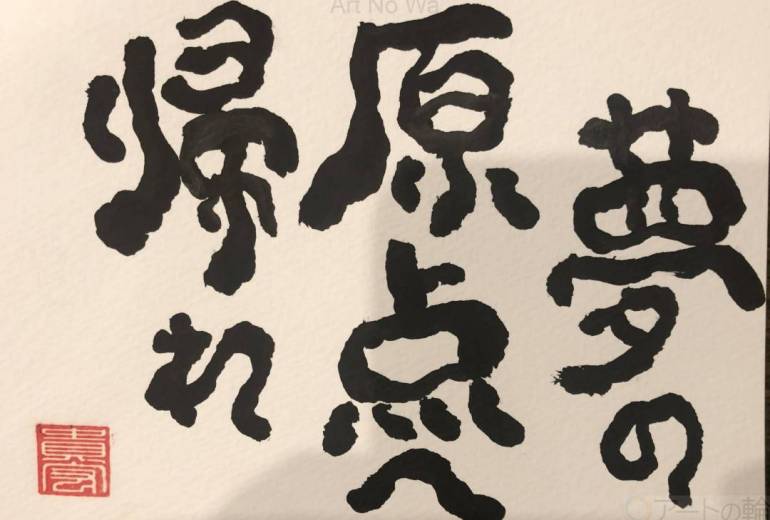 夢の
原点へ
帰れ
Art No Wa
アートの輪